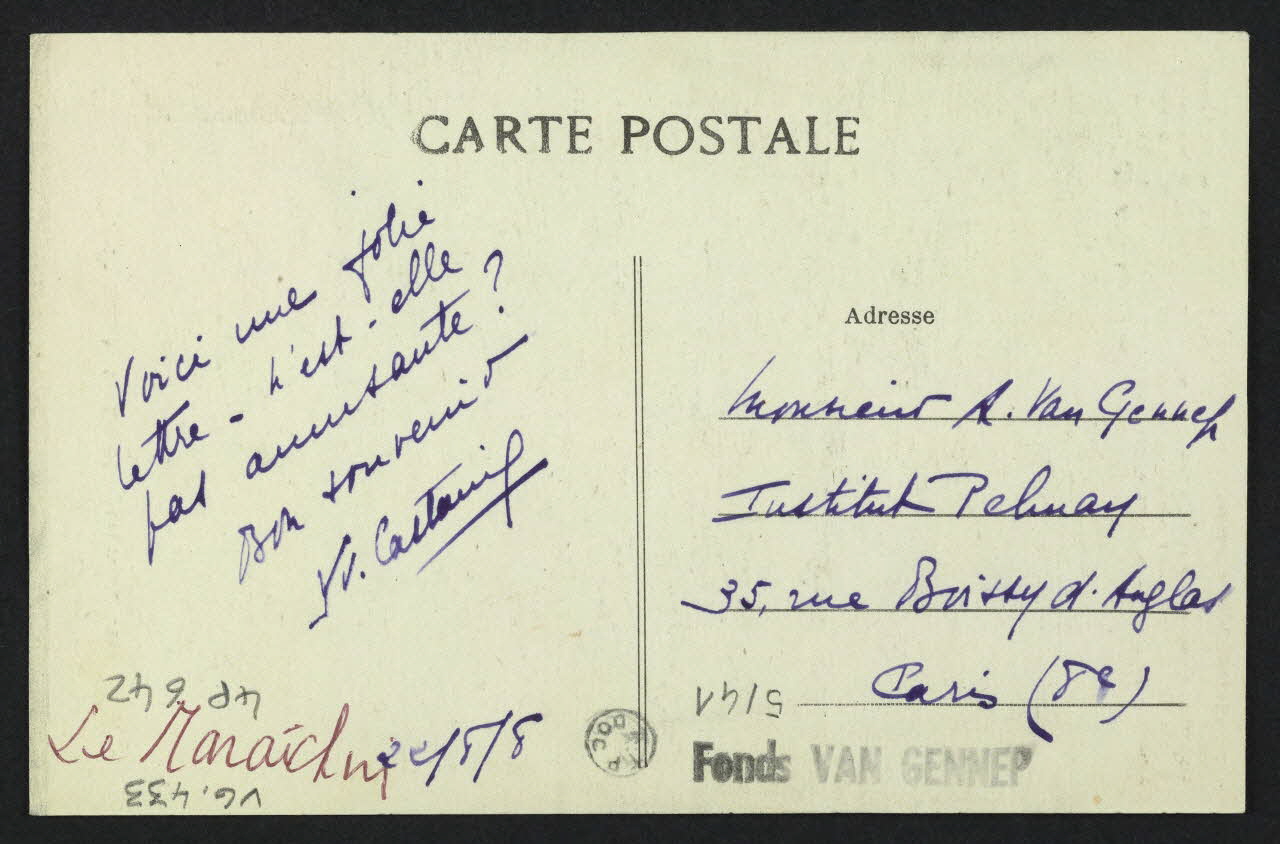 CARTE POSTALE
Voici une jolie
lettre - n'est-elle
pas amusante ?
Bon souvenir
Adresse
Monsieur A. Van Gennep
Institut Pelman
35, rue Boissy d'Anglas
Paris (8e)
4P 642
Le Maraîchin
VG.433
5141
DOC
Fonds VAN GENNEP